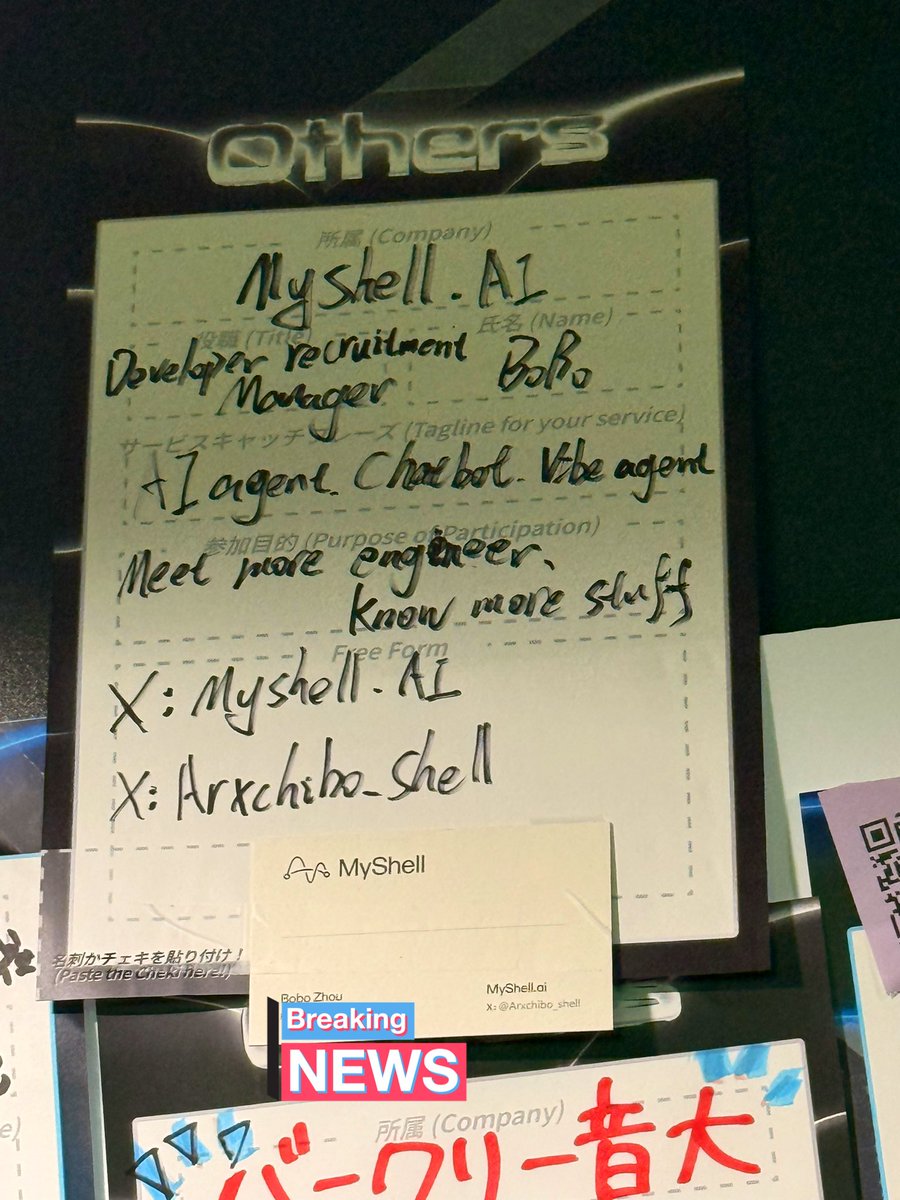 Others
所属 (Company)
Myshell. AI
役職 (Title)
氏名 (Name)
Developer recruitment
Manager
BoBo
サービスキャッチフレーズ (Tagline for your service)
AI agent. Chatbot. Vibe agent
参加目的 (Purpose of Participation)
Meet more engineer.
know more stuff
Free Form
X: Myshell. AI
X: Arxchibo_shell
MyShell
名刺かチェキを貼り付け!
(Paste the Cheki here!!)
Bobo Zhou
MyShell.ai
X: @Arxchibo_shell
Breaking
NEWS
所属 (Company)
バークリー音大